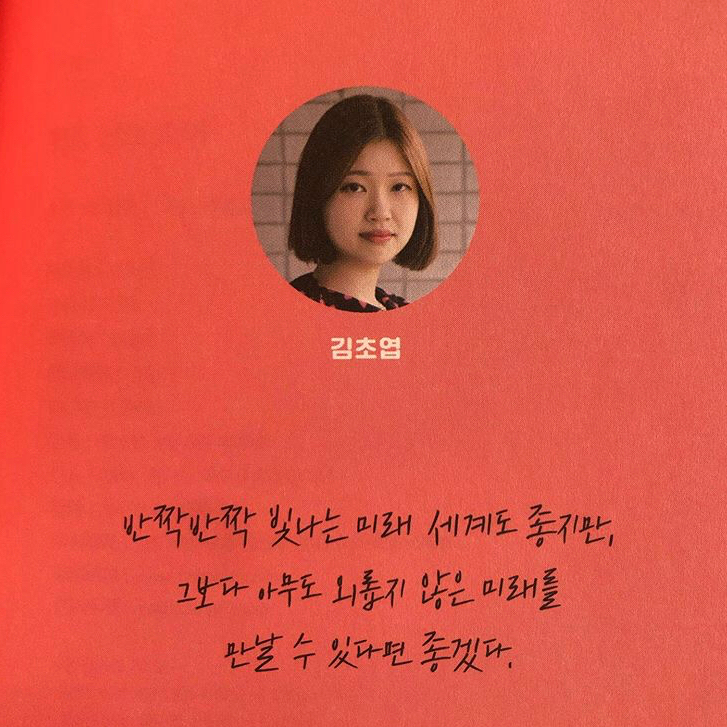 김초엽
반짝반짝 빛나는 미래 세계도 좋지만,
그보다 아무도 외롭지 않은 미래를
만날 수 있다면 좋겠다.